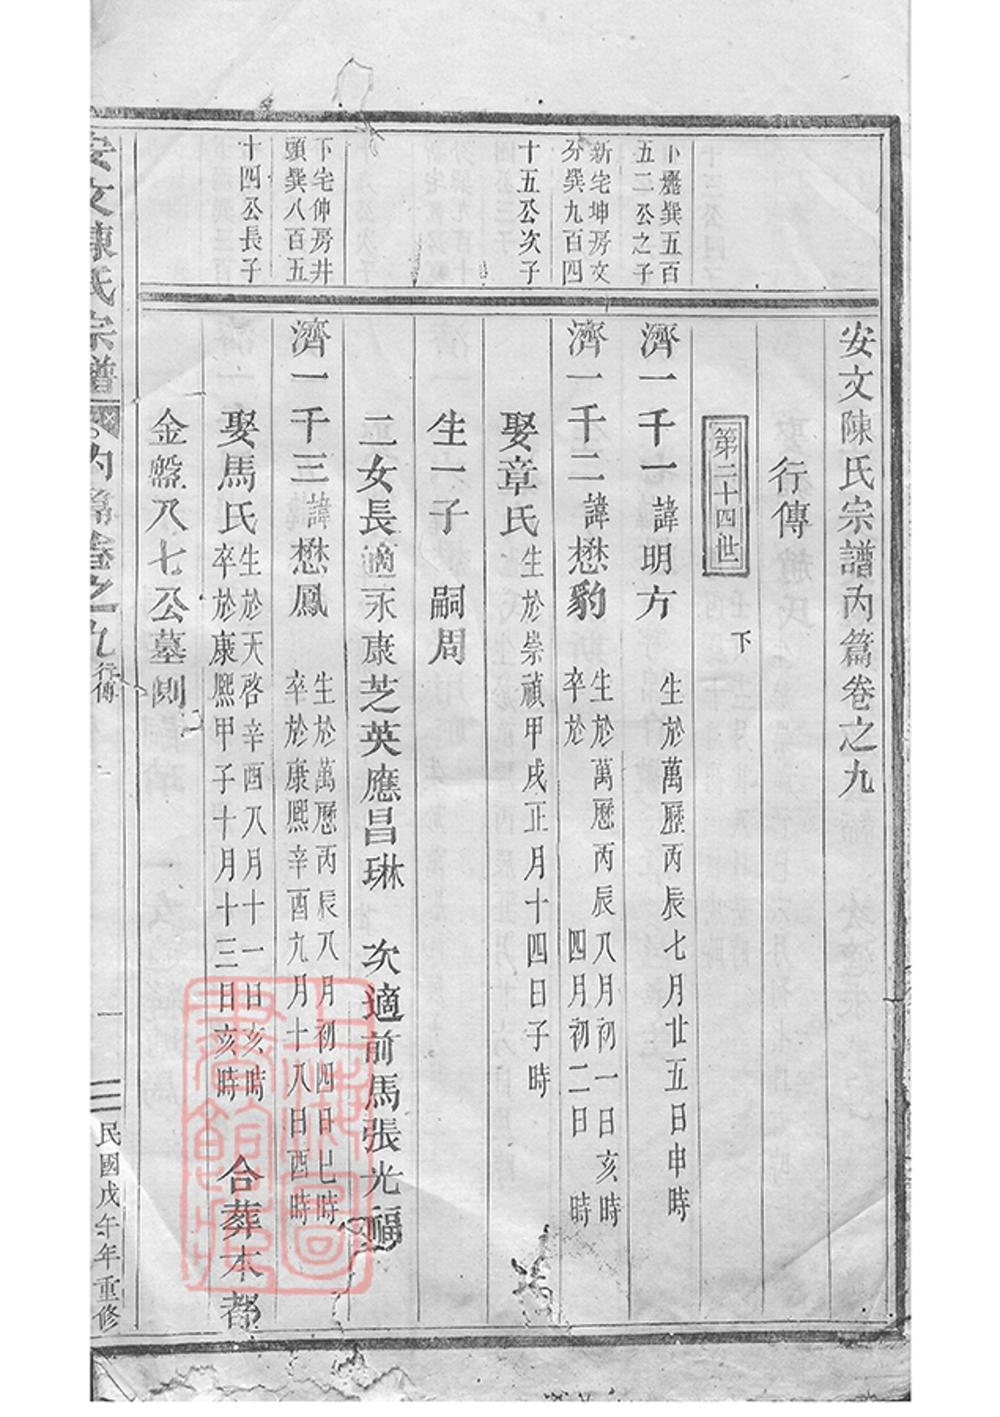 安文陳氏宗譜內篇卷之九
行傳
第二十四世
下
卜麗巽五百
五二公之子
濟一千一諱明方 生於萬歷丙辰七月廿五日申時
新宅坤房文
分巽九百四
十五公次子
濟一千二諱懋豹 生於萬歷丙辰八月初一日亥時
卒於 四月初二日 時
娶章氏生於崇禎甲戌正月十四日子時
生一子 嗣周
二女長適永康芝英應昌琳 次適前馬張光福
下宅伸房井
頭巽八百五
十四公長子
濟一千三諱懋鳳 生於萬歷丙辰八月初四日巳時
卒於康熙辛酉九月十八日酉時
娶馬氏生於天啓辛酉八月十一日亥時
卒於康熙甲子十月十三日亥時 合葬本都
金盤八七公墓側
安文陳氏宗譜 內篇卷之九 行傳
一
民國戊午年重修
上海圖書館藏